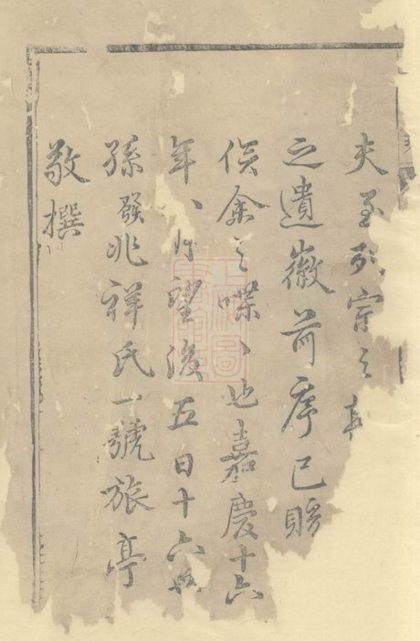 夫至於宗之
之遺徽前序已
俟余之喋、也嘉慶十六
年月望後五日十六世
孫發兆祥氏一號旅亭
敬撰